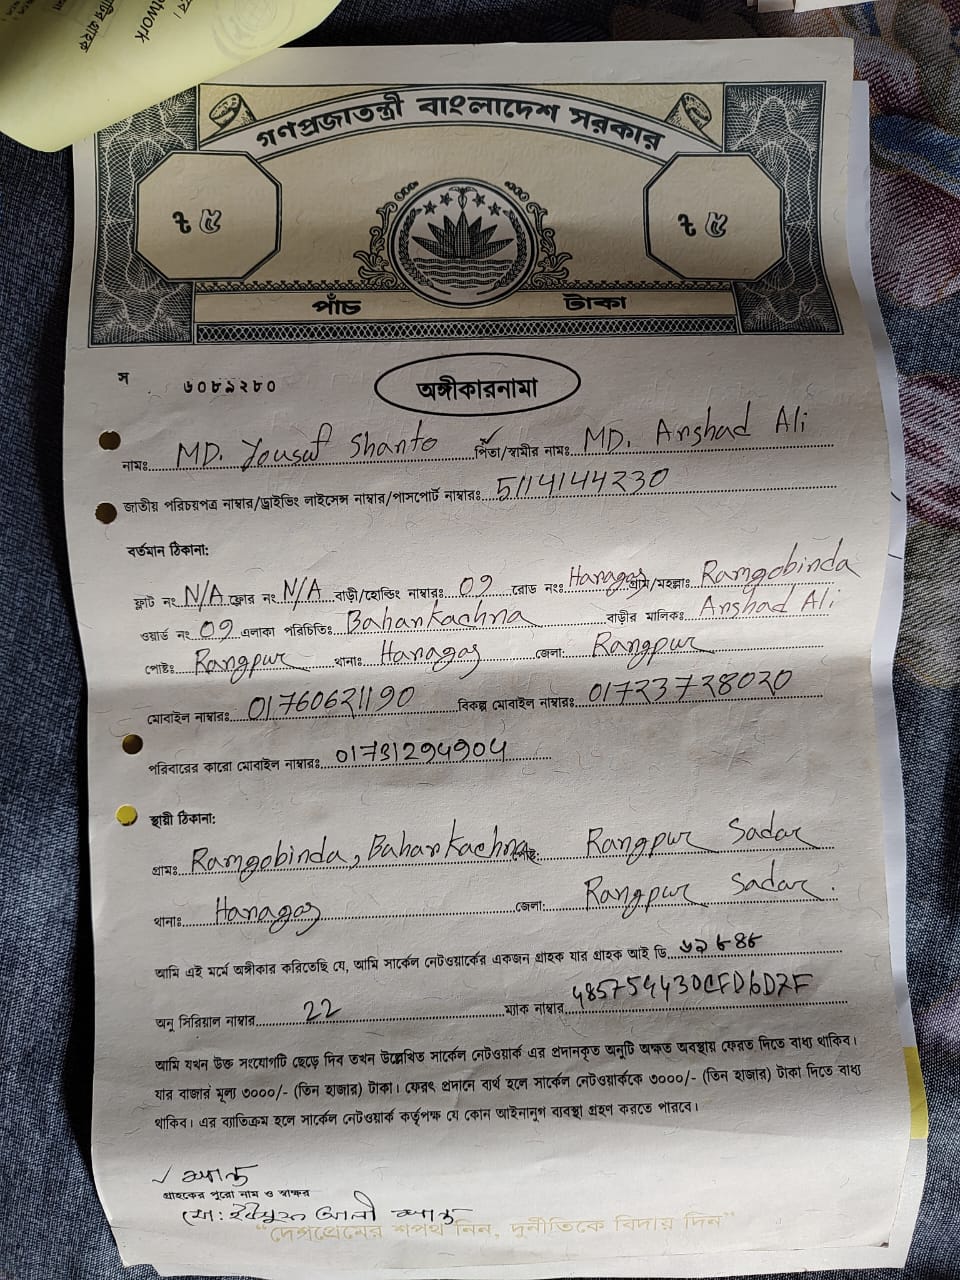 গণপ্রজাতন্ত্রী বাংলাদেশ সরকার
৳ ৫ ৳ ৫
পাঁচ টাকা
স ৬০৮৯২৮০
অঙ্গীকারনামা
নামঃ MD. Yousuf Shanto পিতা/স্বামীর নামঃ MD. Arshad Ali
জাতীয় পরিচয়পত্র নাম্বার/ড্রাইভিং লাইসেন্স নাম্বার/পাসপোর্ট নাম্বারঃ 5114144230
বর্তমান ঠিকানা:
ফ্লাট নং N/A ফ্লোর নং N/A বাড়ী/হোল্ডিং নাম্বারঃ 09 রোড নংঃ Haragas গ্রাম/মহল্লাঃ Ramgobinda
ওয়ার্ড নং 09 এলাকা পরিচিতিঃ Baharkachna বাড়ীর মালিকঃ Arshad Ali
পোষ্টঃ Rangpur থানাঃ Haragas জেলা: Rangpur
মোবাইল নাম্বারঃ 01760621190 বিকল্প মোবাইল নাম্বারঃ 01723728020
পরিবারের কারো মোবাইল নাম্বারঃ
স্থায়ী ঠিকানা:
গ্রামঃ Ramgobinda, Baharkachna Rangpur Sadar
থানাঃ Haragas জেলা: Rangpur Sadar.
আমি এই মর্মে অঙ্গীকার করিতেছি যে, আমি সার্কেল নেটওয়ার্কের একজন গ্রাহক যার গ্রাহক আই ডি
অনু সিরিয়াল নাম্বার 22 ম্যাক নাম্বার
আমি যখন উক্ত সংযোগটি ছেড়ে দিব তখন উল্লেখিত সার্কেল নেটওয়ার্ক এর প্রদানকৃত অনুটি অক্ষত অবস্থায় ফেরত দিতে বাধ্য থাকিব।
যার বাজার মূল্য ৩০০০/- (তিন হাজার) টাকা। ফেরৎ প্রদানে ব্যর্থ হলে সার্কেল নেটওয়ার্ককে ৩০০০/- (তিন হাজার) টাকা দিতে বাধ্য
থাকিব। এর ব্যতিক্রম হলে সার্কেল নেটওয়ার্ক কর্তৃপক্ষ যে কোন আইনানুগ ব্যবস্থা গ্রহণ করতে পারবে।
গ্রাহকের পুরো নাম ও স্বাক্ষর
"দেশপ্রেমের শপথ নিন, দুর্নীতিকে বিদায় দিন"